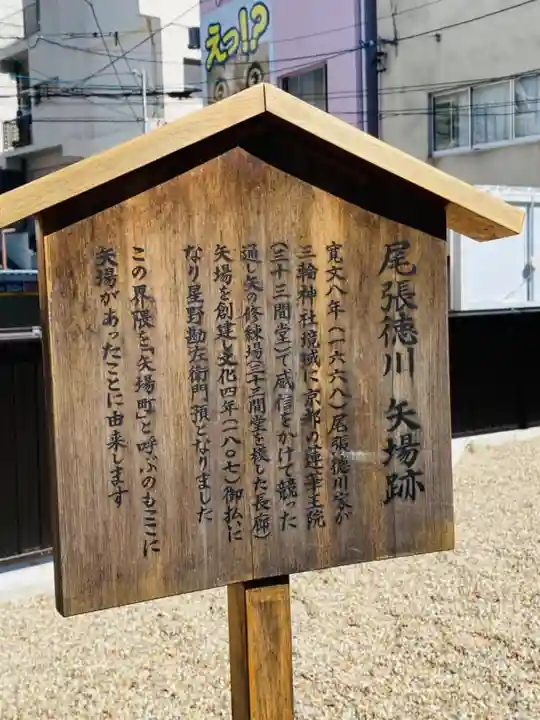 えっ!?
尾張徳川 矢場跡
寛文八年(一六六八)尾張徳川家が
三輪神社境域に京都の蓮華王院
(三十三間堂)て威信をかけて競った
通し矢の修練場(三十三間堂を模した長廊)
矢場を創建し文化四年(一八〇七)御払に
なり星野勘左衛門預となりました
この界隈を「矢場町」と呼ぶのもここに
矢場があったことに由来します